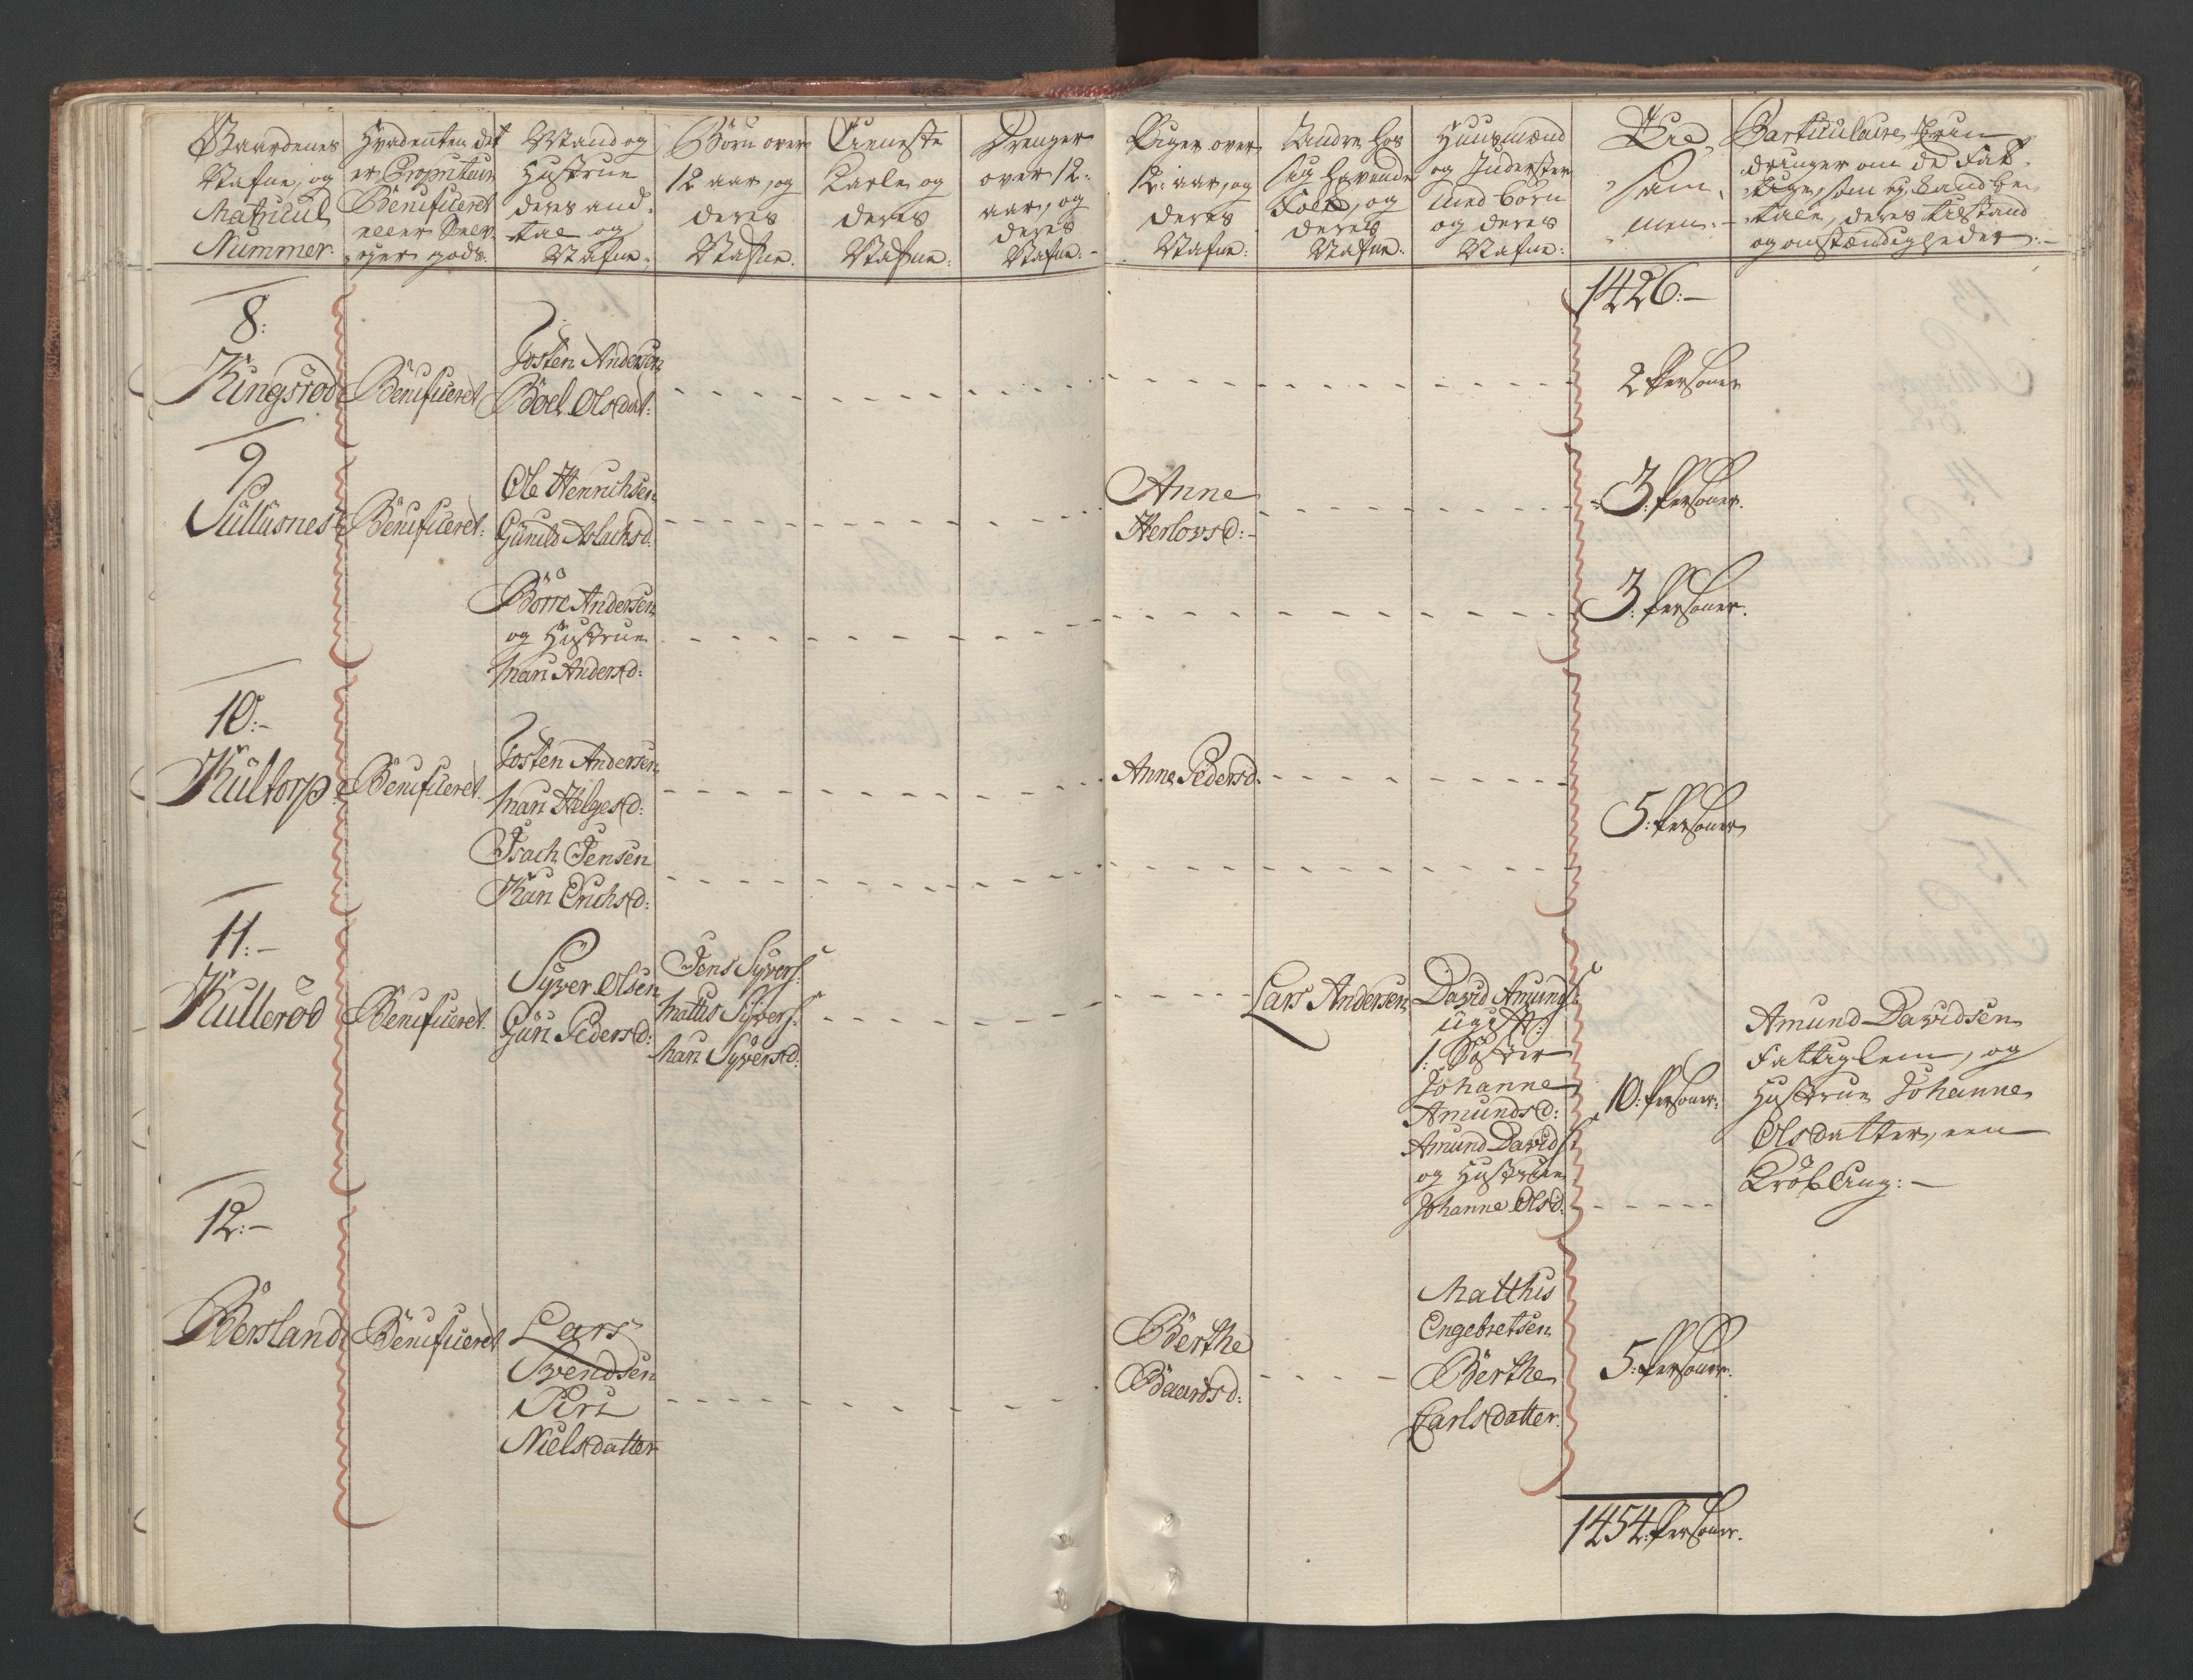 Gaardenes
Nafne, og
Matricul
Nummer.
Hvadenten det
er Proprietair
Beneficeret
eller Selv-
eyer gods.
Mand og
Hustrue
deres and-
tal og
Nafne.
Börn over
12 aar, og
deres
Nafne.
Tieneste
Karle og
deres
Nafne.
Drenger
over 12:
aar, og
deres
Nafne:-
Piger over
12: aar, og
deres
Nafne:
Andre hos
sig havende
Folk, og
deres
Nafne:
Huusmænd
og Inderster
med börn
og deres
Nafne:
Til-
sam-
men:-
Particulaire Erin-
dringer om de Fat-
tige, som ej kand be-
tale, deres tilstand
og omstændigheder:-
1426:-
8:
Ringsröd
Beneficeret
Tosten Andersen
Boel Olsdat:
2 Personer
9
Sullusnes
Beneficeret:
Ole Henrichsen
Gunild Aslachsd:
Anne
Herlovsd:-
3: Personer.
Börre Andersen
og Hustrue
Mari Andersd:
3: Personer.
10:-
Kultorp
Beneficeret.
Tosten Andersen
Mari Helgesd:
Isach Jensen
Kari Erichsd:
Anne Pedersd:
5: Personer
11:-
Kulleröd
Beneficeret.
Syver Olsen
Guri Pedersd:
Jens Syvers:
Mattis Syvers:
Mari Syversd:
Lars Andersen
David Amunds:
ugift:
1: Söster
Johanne
Amundsd:
Amund Davids:
og Hustrue
Johanne Olsd:
10: Personer:
Amund Davidsen
Fattiglem, og
Hustrue Johanne
Olsdatter, een
Kröbling:-
12:-
Börsland
Beneficeret
Lars
Svendsen
Siri
Nielsdatter
Berthe
Baardsd:
Matthis
Engebretsen
Berthe
Carlsdatter.
5: Personer.
1454: Personer.